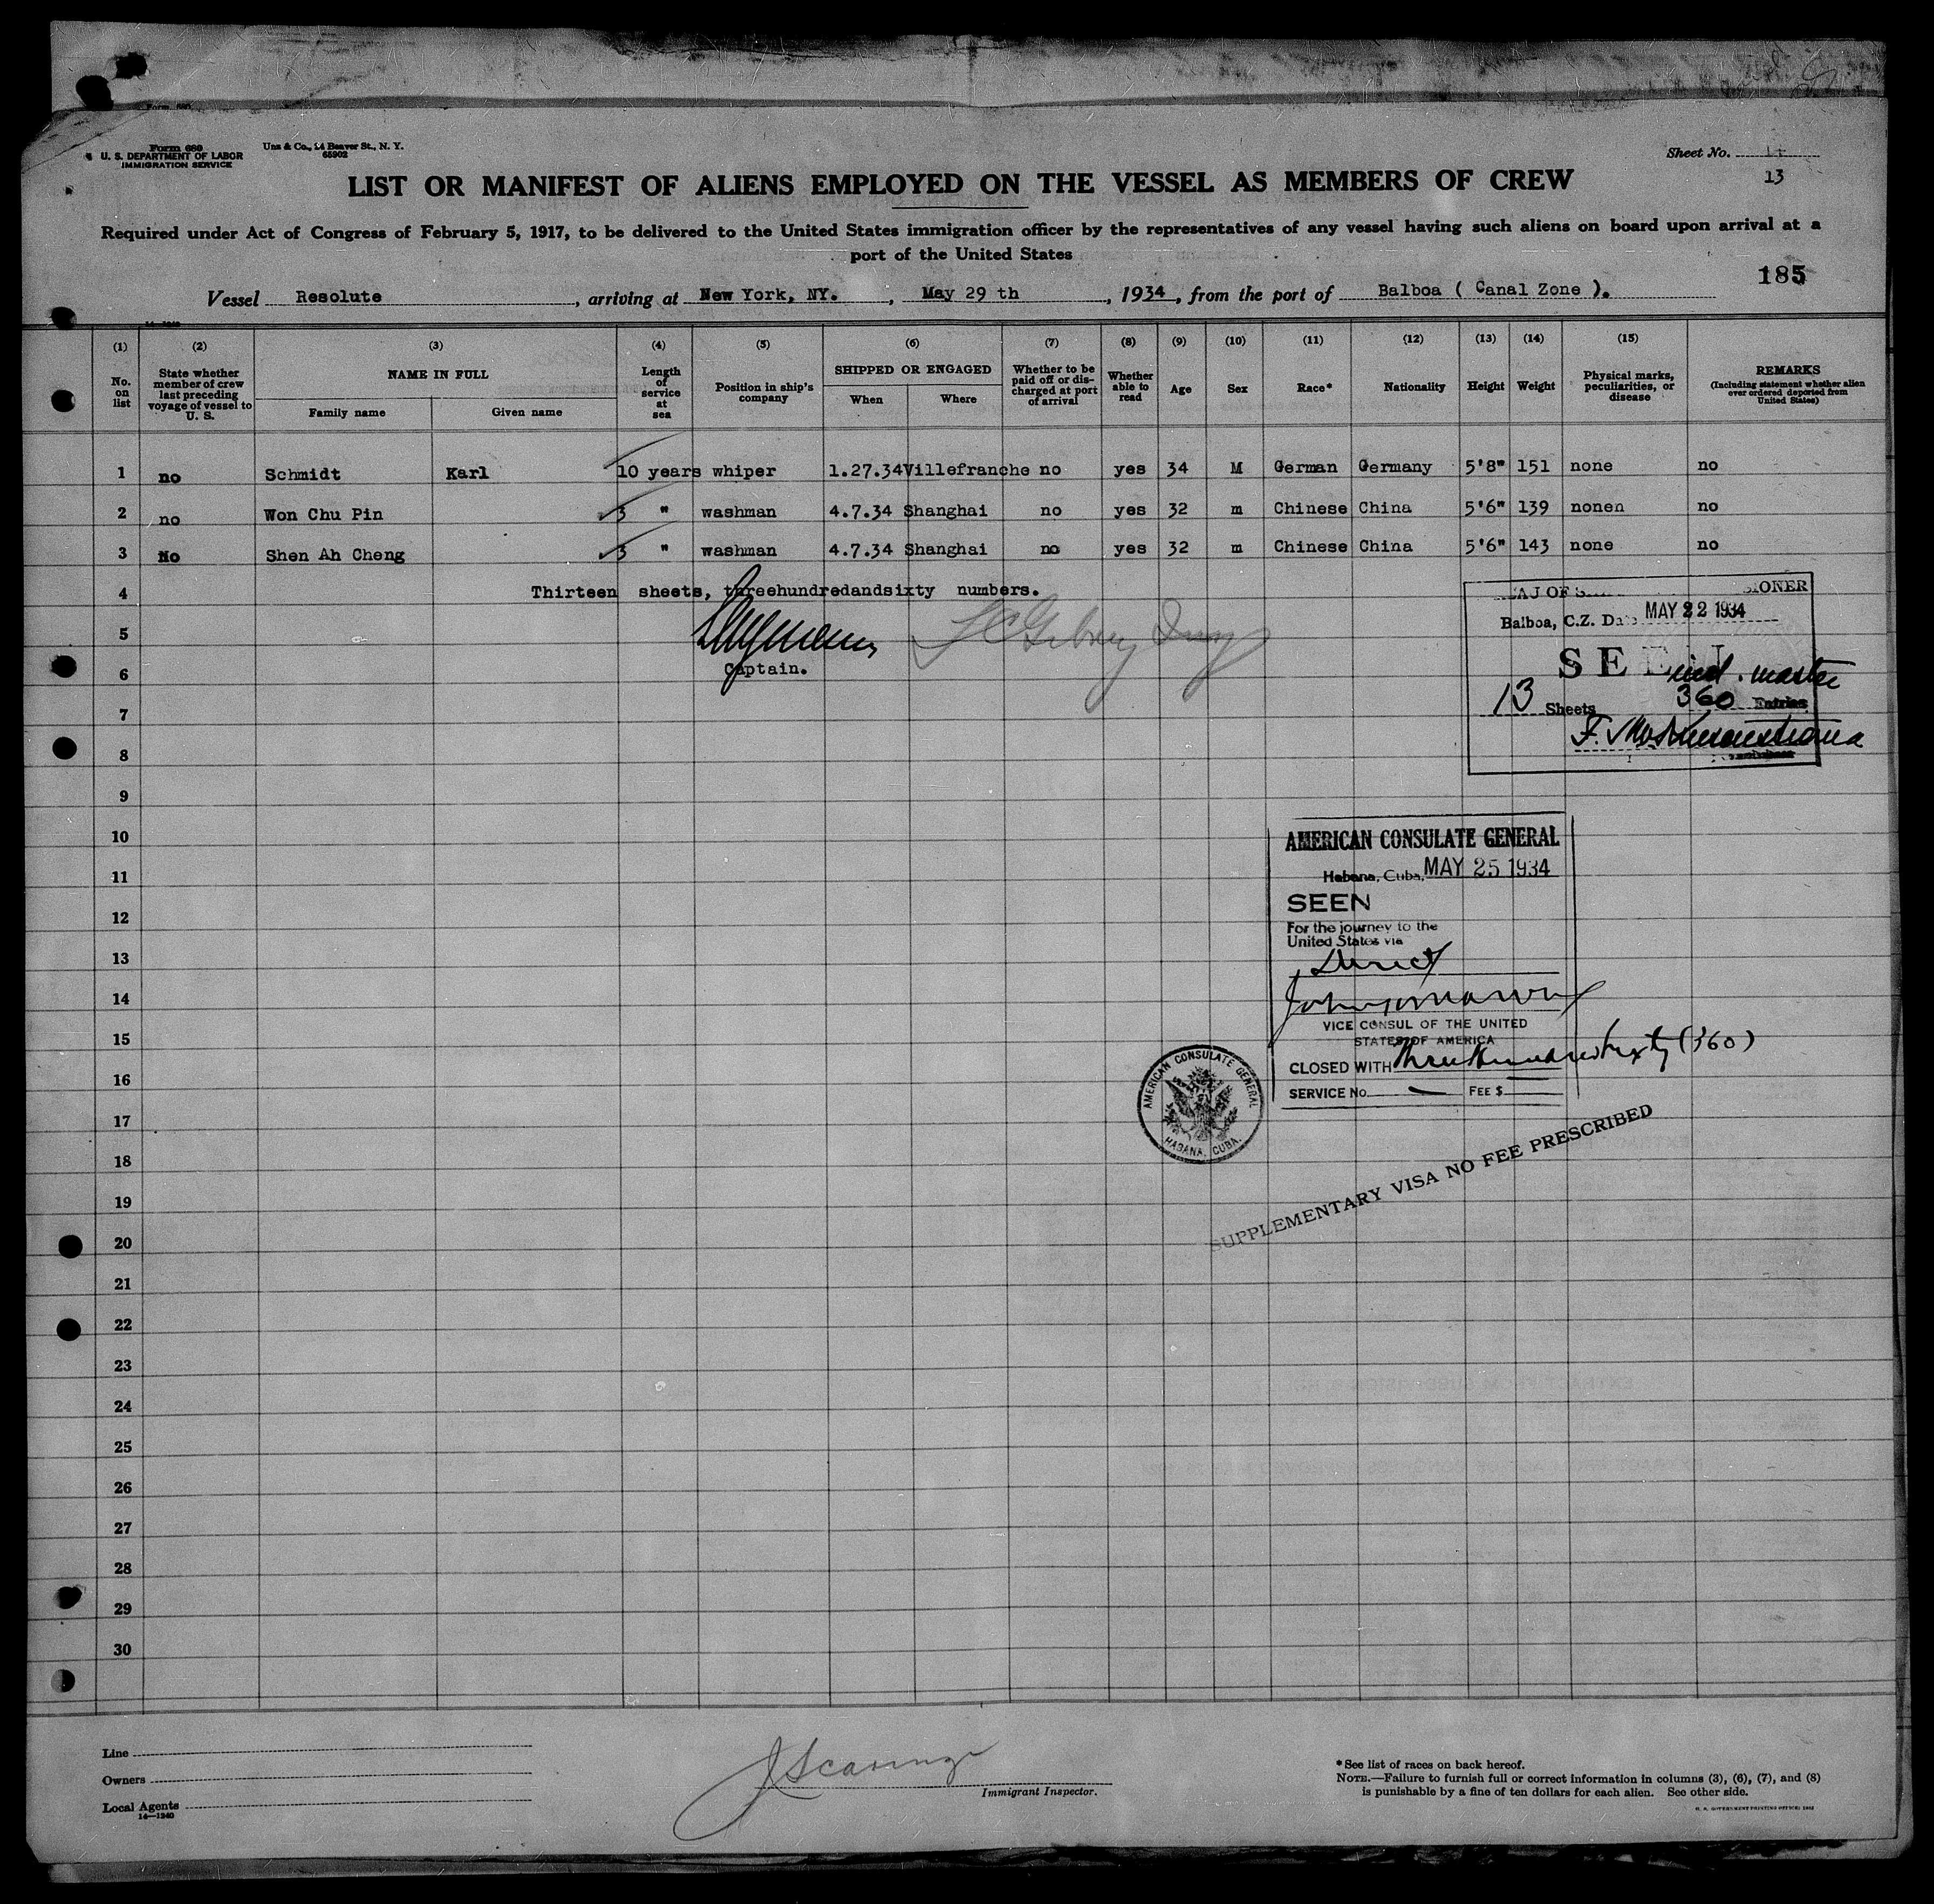 Form 680
U. S. DEPARTMENT OF LABOR
IMMIGRATION SERVICE
Unz & Co., 24 Beaver St., N. Y.
65902
Sheet No.
13
LIST OR MANIFEST OF ALIENS EMPLOYED ON THE VESSEL AS MEMBERS OF CREW
Required under Act of Congress of February 5, 1917, to be delivered to the United States immigration officer by the representatives of any vessel having such aliens on board upon arrival at a
port of the United States
185
Vessel Resolute, arriving at New York, NY., May 29 th, 1934, from the port of Balboa ( Canal Zone ).
(1) (2) (3) (4) (5) (6) (7) (8) (9) (10) (11) (12) (13) (14) (15)
No. on list
State whether member of crew last preceding voyage of vessel to U. S.
NAME IN FULL
Family name
Given name
Length of service at sea
Position in ship's company
SHIPPED OR ENGAGED
When
Where
Whether to be paid off or discharged at port of arrival
Whether able to read
Age
Sex
Race*
Nationality
Height
Weight
Physical marks, peculiarities, or disease
REMARKS
(Including statement whether alien ever ordered deported from United States)
1 no Schmidt Karl 10 years whiper 1.27.34 Villefranche no yes 34 M German Germany 5'8" 151 none no
2 no Won Chu Pin 3 " washman 4.7.34 Shanghai no yes 32 m Chinese China 5'6" 139 nonen no
3 No Shen Ah Cheng 3 " washman 4.7.34 Shanghai no yes 32 m Chinese China 5'6" 143 none no
4 Thirteen sheets, threehundredandsixty numbers.
5
6 Captain.
7
8
9
10
11
12
13
14
15
16
17
18
19
20
21
22
23
24
25
26
27
28
29
30
Balboa, C.Z. Date MAY 22 1934
SEEN
incl. master
13 Sheets 360 Entries
AMERICAN CONSULATE GENERAL
Habana, Cuba, MAY 25 1934
SEEN
For the journey to the
United States via
Direct
VICE CONSUL OF THE UNITED
STATES OF AMERICA
CLOSED WITH Three Hundred Sixty (360)
SERVICE No. FEE $
AMERICAN CONSULATE GENERAL
HABANA, CUBA.
SUPPLEMENTARY VISA NO FEE PRESCRIBED
Line
Owners
Local Agents
14—1240
Immigrant Inspector.
*See list of races on back hereof.
NOTE.—Failure to furnish full or correct information in columns (3), (6), (7), and (8)
is punishable by a fine of ten dollars for each alien. See other side.